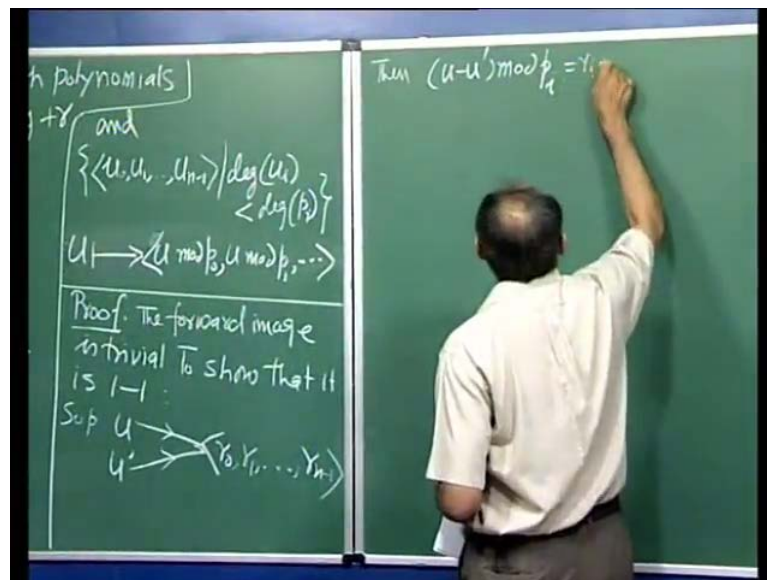 h polynomials
+r and
{<u₀,u₁,...,uₙ₋₁> | deg(uᵢ)
< deg(pᵢ)}
u ↦ <u mod p₀, u mod p₁, ...>
Proof: The forward image
is trivial To show that it
is 1–1 :
Sup u
u' r₀, r₁, ..., rₙ₋₁>
Then (u-u') mod pᵢ = rᵢ -